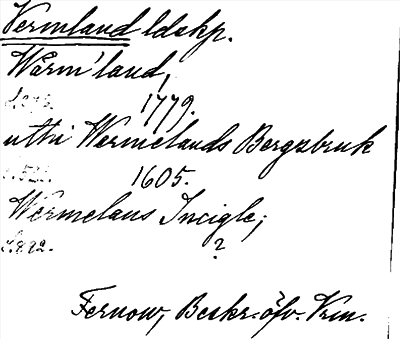 Vermland ldskp.
Wärm'land,
1779.
uthi Wermelands Bergzbruk
1605.
Wermelans Incigle;
s. 892. ?
Fernow, Beskr. öfv. Vrm.